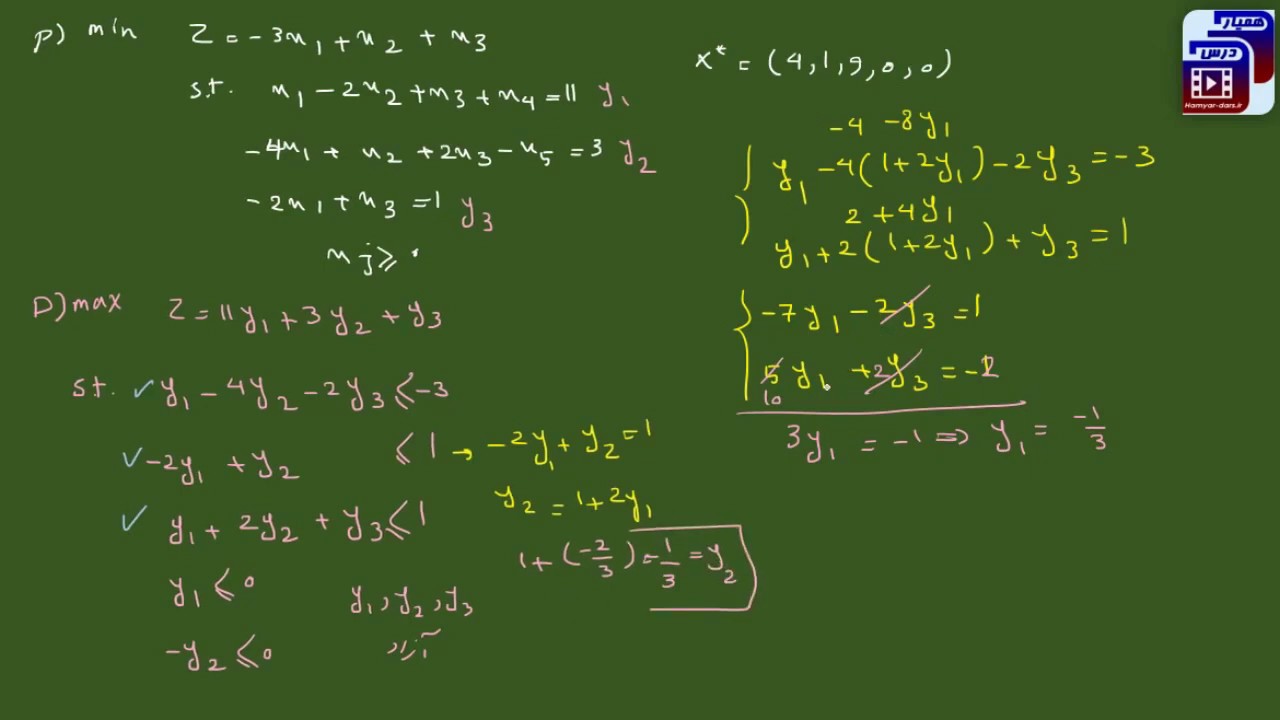 P) min Z = -3x₁ + x₂ + x₃
s.t. x₁ - 2x₂ + x₃ + x₄ = 11 y₁
-4x₁ + x₂ + 2x₃ - x₅ = 3 y₂
-2x₁ + x₃ = 1 y₃
xj ≥ ۰
D) max Z = 11y₁ + 3y₂ + y₃
s.t. ✓ y₁ - 4y₂ - 2y₃ ≤ -3
✓ -2y₁ + y₂ ≤ 1 → -2y₁ + y₂ = 1
y₂ = 1 + 2y₁
✓ y₁ + 2y₂ + y₃ ≤ 1
1 + (-2/3) = 1/3 = y₂
y₁ ≤ 0
y₁, y₂, y₃
-y₂ ≤ 0
آزاد
x* = (4, 1, 9, 0, 0)
-4 -8y₁
y₁ - 4(1 + 2y₁) - 2y₃ = -3
2 + 4y₁
y₁ + 2(1 + 2y₁) + y₃ = 1
-7y₁ - 2y₃ = 1
5y₁ + 2y₃ = -2
10
3y₁ = -1 ⇒ y₁ = -1/3
همیار
درس
Hamyar-dars.ir